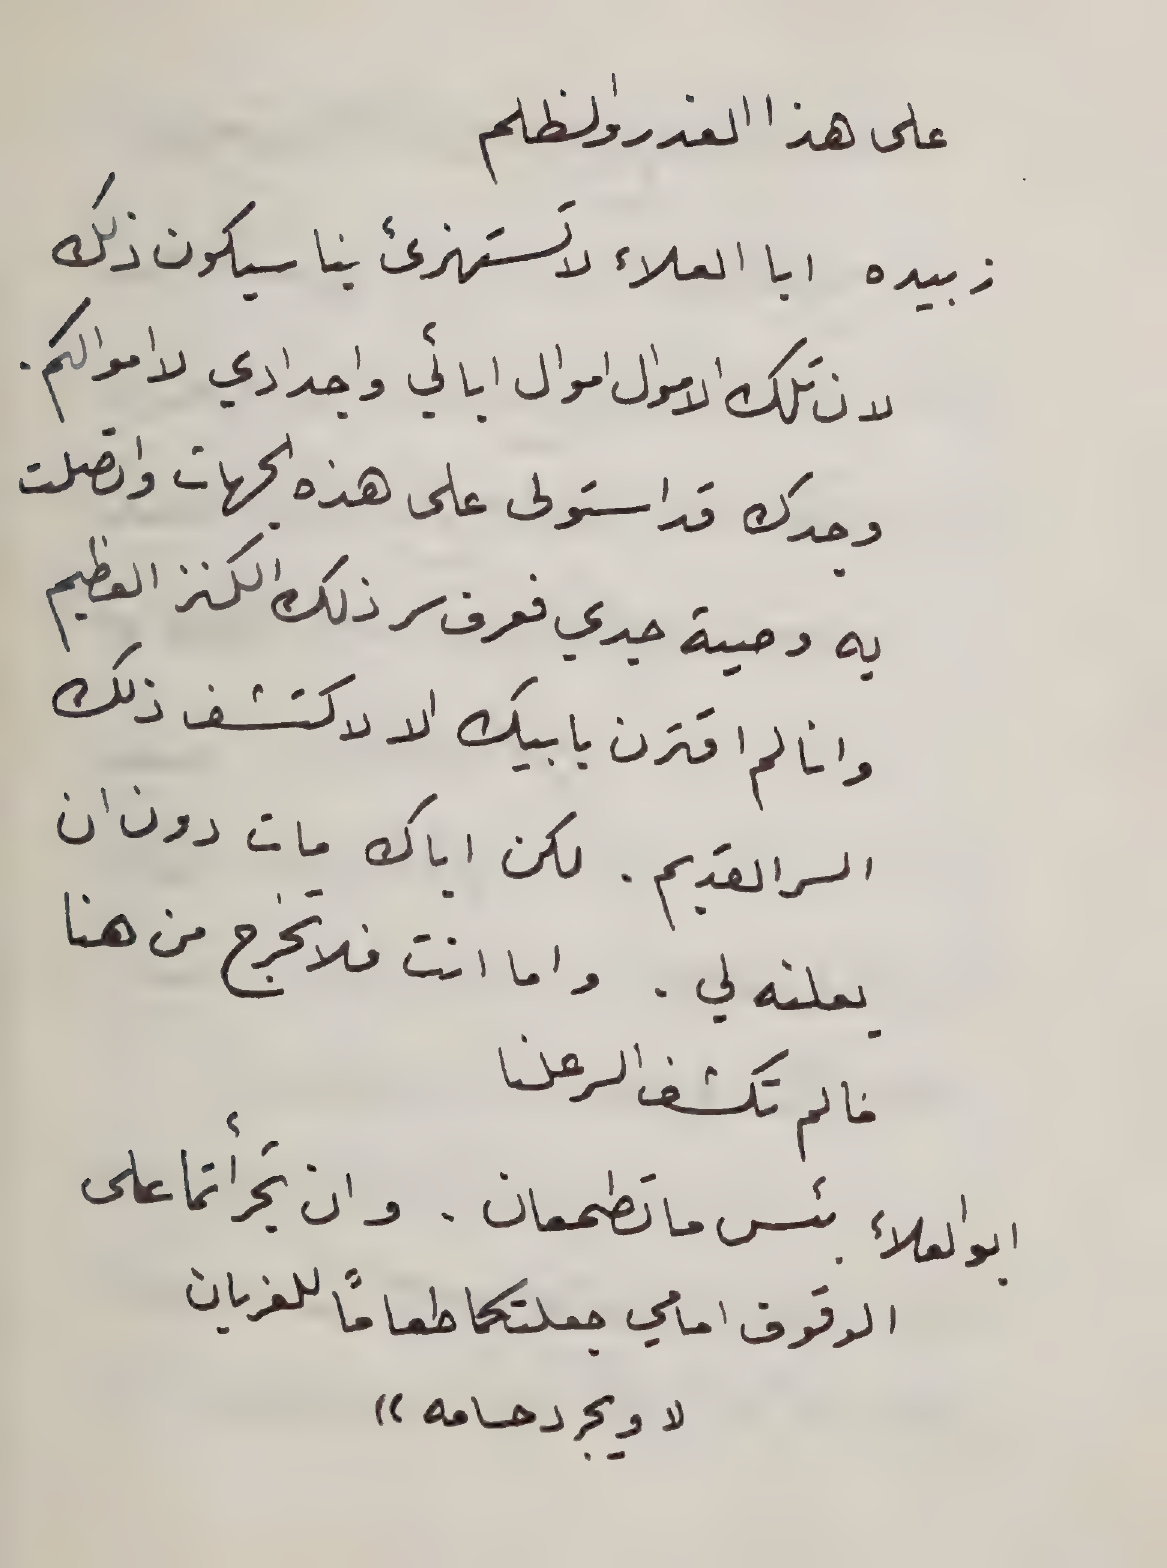 على هذا الغدر والظلم
زبيده ابا العلاء لا تستهزئ بنا سيكون ذلك
لان تلك الاموال اموال ابائي واجدادي لا اموالكم .
وجدك قد استولى على هذه الجهات واتصلت
به وصية جدي فعرف سر ذلك الكنز العظيم
وانا لم اقترن بابيك الا لاكتشف ذلك
السر القديم . لكن اباك مات دون ان
يعلنه لي . واما انت فلا تخرج من هنا
مالم تكشف السر علنا
ابو العلاء بئس ما تطمعان . وان تجرأتما على
الوقوف امامي جعلتكما طعاماً للغربان
لا ويجرد حسامه »